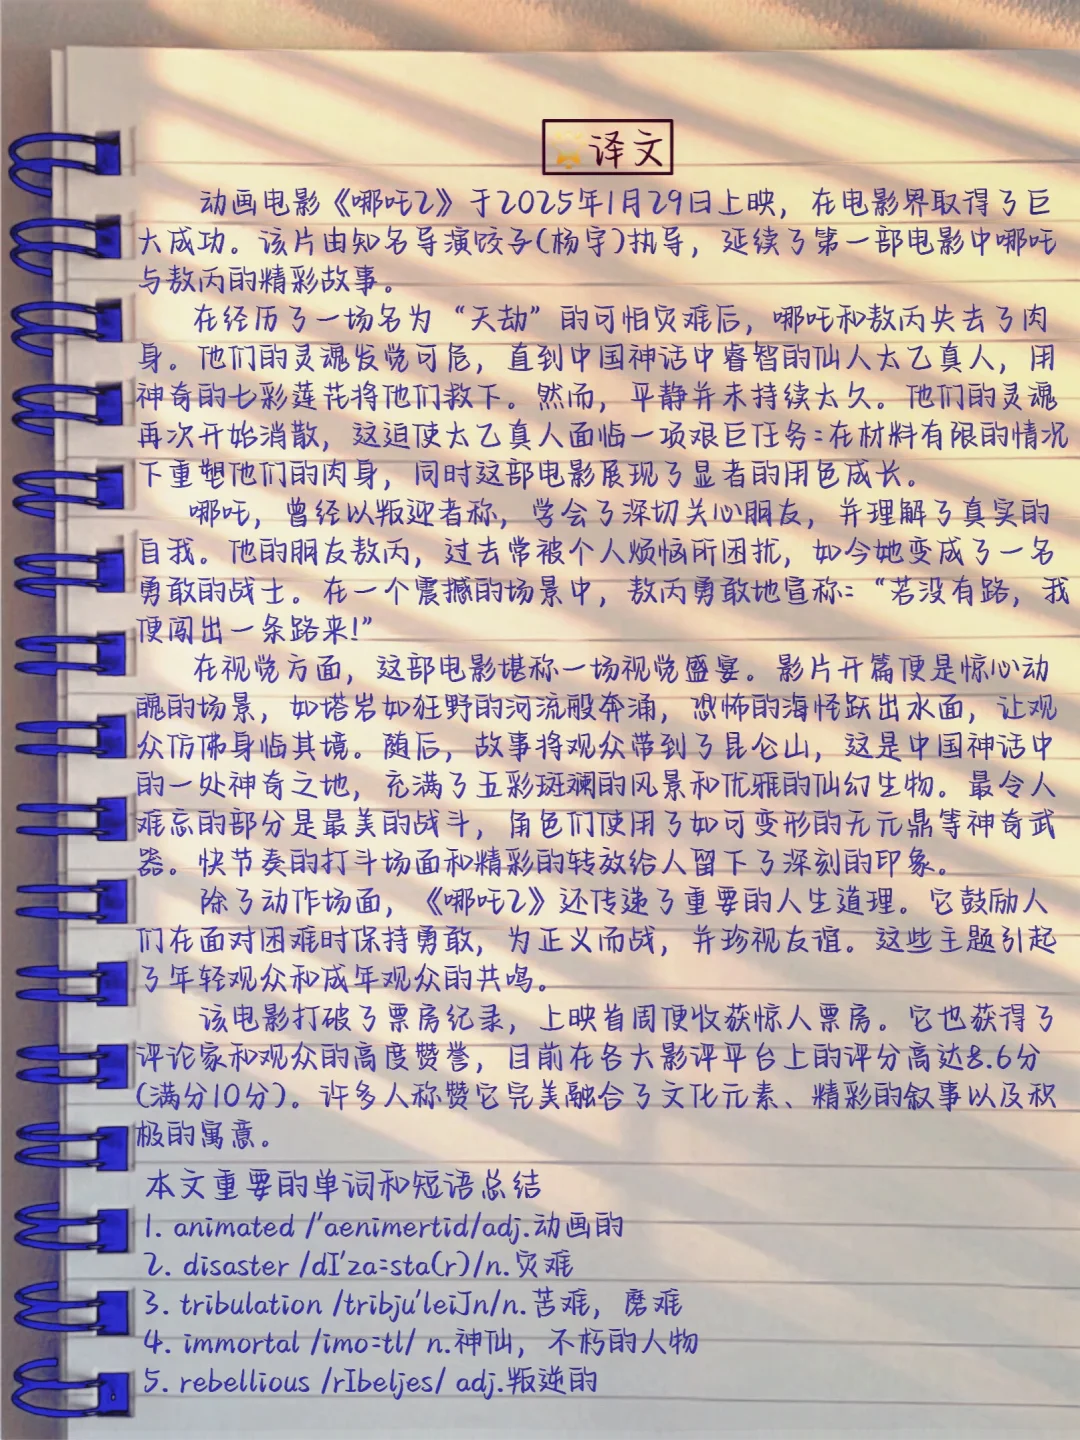 译文
动画电影《哪吒2》于2025年1月29日上映，在电影界取得了巨
大成功。该片由知名导演饺子(杨宇)执导，延续了第一部电影中哪吒
与敖丙的精彩故事。
在经历了一场名为“天劫”的可怕灾难后，哪吒和敖丙失去了肉
身。他们的灵魂岌岌可危，直到中国神话中睿智的仙人太乙真人，用
神奇的七彩莲花将他们救下。然而，平静并未持续太久。他们的灵魂
再次开始消散，这迫使太乙真人面临一项艰巨任务:在材料有限的情况
下重塑他们的肉身，同时这部电影展现了显著的用色成长。
哪吒，曾经以叛迎者称，学会了深切关心朋友，并理解了真实的
自我。他的朋友敖丙，过去常被个人烦恼所困扰，如今她变成了一名
勇敢的战士。在一个震撼的场景中，敖丙勇敢地宣称:“若没有路，我
便闯出一条路来!”
在视觉方面，这部电影堪称一场视觉盛宴。影片开篇便是惊心动
魄的场景，如塔岩如狂野的河流般奔涌，恐怖的海怪跃出水面，让观
众仿佛身临其境。随后，故事将观众带到了昆仑山，这是中国神话中
的一处神奇之地，充满了五彩斑斓的风景和优雅的仙幻生物。最令人
难忘的部分是最美的战斗，角色们使用了如可变形的无元鼎等神奇武
器。快节奏的打斗场面和精彩的转效给人留下了深刻的印象。
除了动作场面，《哪吒2》还传递了重要的人生道理。它鼓励人
们在面对困难时保持勇敢，为正义而战，并珍视友谊。这些主题引起
了年轻观众和成年观众的共鸣。
该电影打破了票房纪录，上映首周便收获惊人票房。它也获得了
评论家和观众的高度赞誉，目前在各大影评平台上的评分高达8.6分
(满分10分)。许多人称赞它完美融合了文化元素、精彩的叙事以及积
极的寓意。
本文重要的单词和短语总结
1. animated /'aenimertid/adj.动画的
2. disaster /dI'za:sta(r)/n.灾难
3. tribulation /tribju'leiJn/n.苦难，磨难
4. immortal /imo:tl/ n.神仙，不朽的人物
5. rebellious /rIbeljes/ adj.叛逆的